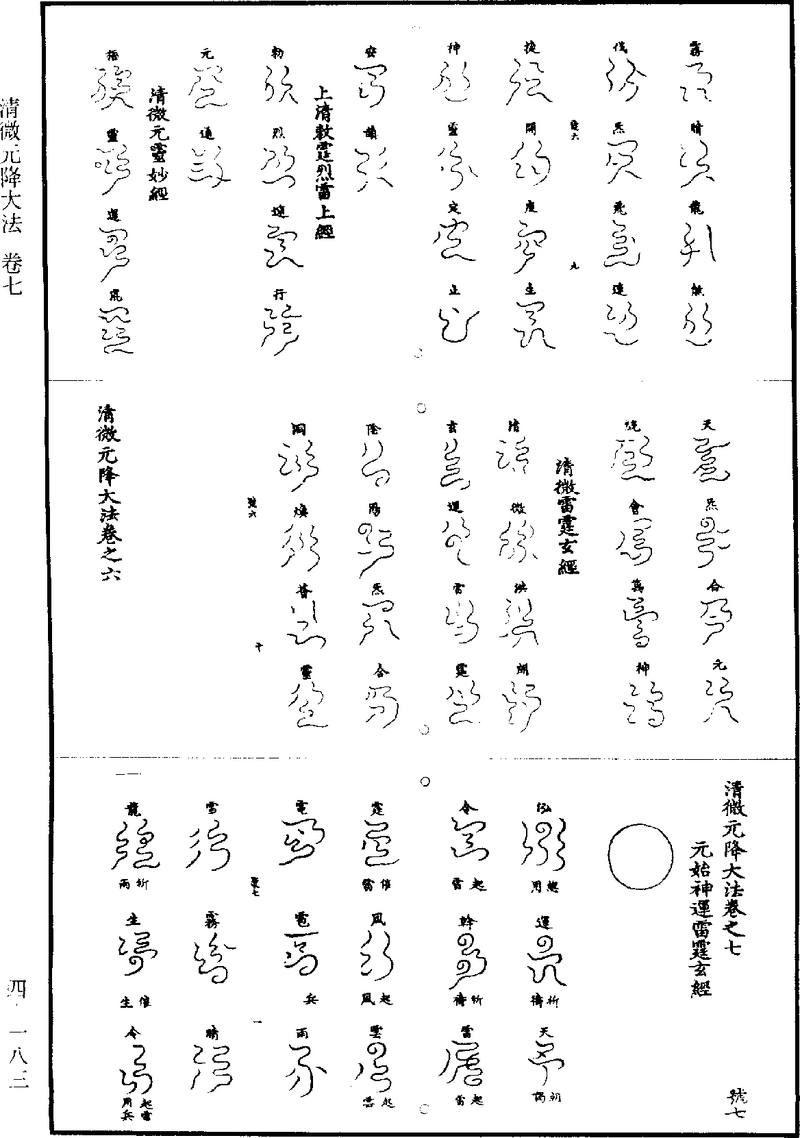 霧 晴 龍
伐 炁 飛
捉 開 度 生
號六 九
神 靈 定 正
安
上清敕霆烈雷上經
勅 烈 行
元 道
清微元靈妙經
靈 運
天 炁 合 元
統 會 萬 神
清微雷霆玄經
清 微 洪 朗
玄 運 雷 霆
陰 陽 炁 合
洞 煥 普 靈
號六 十
清微元降大法卷之六
清微元降大法卷之七 號七
元始神運雷霆玄經
弘 總用 運 祈禱 天 朝謁
令 起雷 幹 祈禱 雷 起雷
霆 催雷 風 起風 雲 起雲
電 雹 兵 雨
號七 一
雪 霧 晴
龍 祈雨 生 催生 令 起雷用兵
清微元降大法 卷七
四·一八三